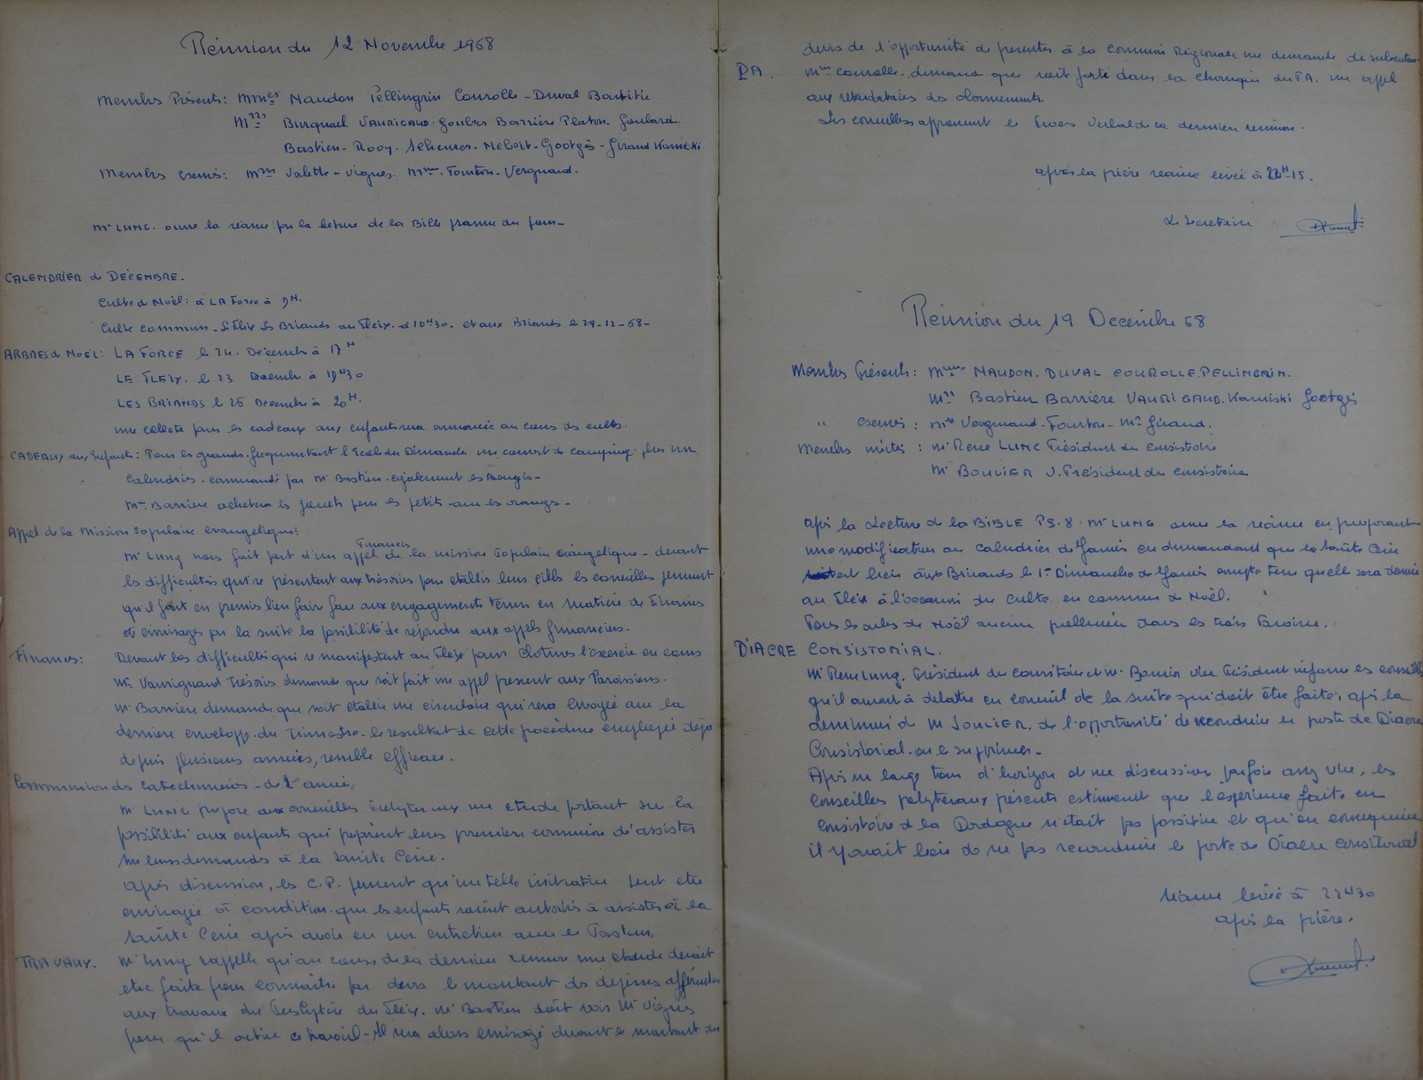 Réunion du 12 Novembre 1968
Membres Présents: Mmes Naudon Pellingrin Courolle - Duval
Mrs VAURIGAUD. Barrière Platon
Bastien - Rooy. - Gootgès - Giraud Kamiski
Membres excusés: Mrs Valette - Vignes. Mmes Tourton - Vergnaud.
Mr LUNG. ouvre la séance par la lecture de la Bible psaume
CALENDRIER de DÉCEMBRE.
Culte de Noël: à LA Force à 9H.
Culte commun - Le Fleix les Briands au Fleix. à 10H30. et aux Briands le 29-12-68-
ARBRES de NOËL: LA FORCE le 24. Décembre à 17H
LE FLEIX. le 23 Décembre à 19H30
LES BRIANDS le 25 Décembre à 20H.
une collecte pour les cadeaux aux enfants sera annoncée au cours des cultes.
CADEAUX aux Enfants: Pour les grands fréquentant l'Ecole du Dimanche un couvert de camping plus un
calendrier. commandé par Mr Bastien. également les bougies-
Mr Barrière achètera les jouets pour les petits - avec les oranges -
Appel de la Mission Populaire Evangélique:
Financier
Mr Lung nous fait part d'un appel de la mission Populaire évangélique - devant
les difficultés qui se présentent aux trésoriers pour établir leurs les conseillers pensent
qu'il faut en premier lieu faire face aux engagements tenus en matière de Finances
et envisager par la suite la possibilité de répondre aux appels financiers.
Finances: Devant les difficultés qui se manifestent au Fleix pour clôturer l'exercice en cours
Mr Trésorier demande que soit fait un appel pressant aux Paroissiens.
Mr Barrière demande que soit établie une circulaire qui sera envoyée avec la
dernière enveloppe du Trimestre. le résultat de cette procédure employée déjà
depuis plusieurs années, semble efficace.
Communion des catéchumènes - de 2e année,
Mr LUNG propose aux conseillers Presbyteraux une étude portant sur la
possibilité aux enfants qui préparent leur première communion d'assister
sur leurs demandes à la Sainte Cène.
après discussion, les C.P. pensent qu'une telle initiative peut être
envisagée à condition que les enfants soient autorisés à assister à la
Sainte Cène après avoir eu un entretien avec le Pasteur.
TRAVAUX. Mr Lung rappelle qu'au cours de la dernière réunion une étude devait
être faite pour connaître par devis le montant des dépenses afférentes
aux travaux du Presbytère du Fleix. Mr Bastien doit voir Mr Vignes
pour qu'il active ce travail - Il sera alors envisagé devant le montant du
devis de l'opportunité de présenter à la Commission Régionale une demande de subvention
PA. Mme Courolle. demande que soit porté dans la chronique du PA. un appel
aux retardataires des abonnements.
Les conseillers approuvent le Procès Verbal de la dernière réunion.
après la prière séance levée à H 15.
Le Secrétaire
Réunion du 19 Decembre 68
Membres Présents: Mmes NAUDON. DUVAL COUROLLE. PELLINGRIN.
Mrs Bastien Barrière VAURIGAUD. Kamiski Gootgès
" excusés: Mmes Vergnaud. Tourton - Mr Giraud.
Membres invités: Mr René LUNG Président du consistoire
Mr V. Président du consistoire
après la Lecture de la BIBLE PS. 8. Mr LUNG ouvre la séance en proposant
une modification au calendrier de Janvier en demandant que la Sainte Cène
ait lieu aux Briands le 1er Dimanche de Janvier compte tenu quelle sera donnée
au Fleix à l'occasion du culte en commun de Noël.
Tous les arbres de Noël dans les trois Paroisses.
DIACRE CONSISTORIAL.
Mr René Lung. Président du consistoire et Mr Vice Président informe les conseillers
qu'il auront à débattre en conseil de la suite qui doit être faite, après la
démission de M de l'opportunité de reconduire le poste de Diacre
Consistorial ou le supprimer -
Après un large tour d'horizon et une discussion parfois assez vive, les
Conseillers presbyteraux présents estiment que l'expérience faite en
consistoire de la Dordogne n'était pas positive et qu'en conséquence
il y avait lieu de ne pas reconduire le poste de Diacre consistorial
séance levée à H30
après la prière.